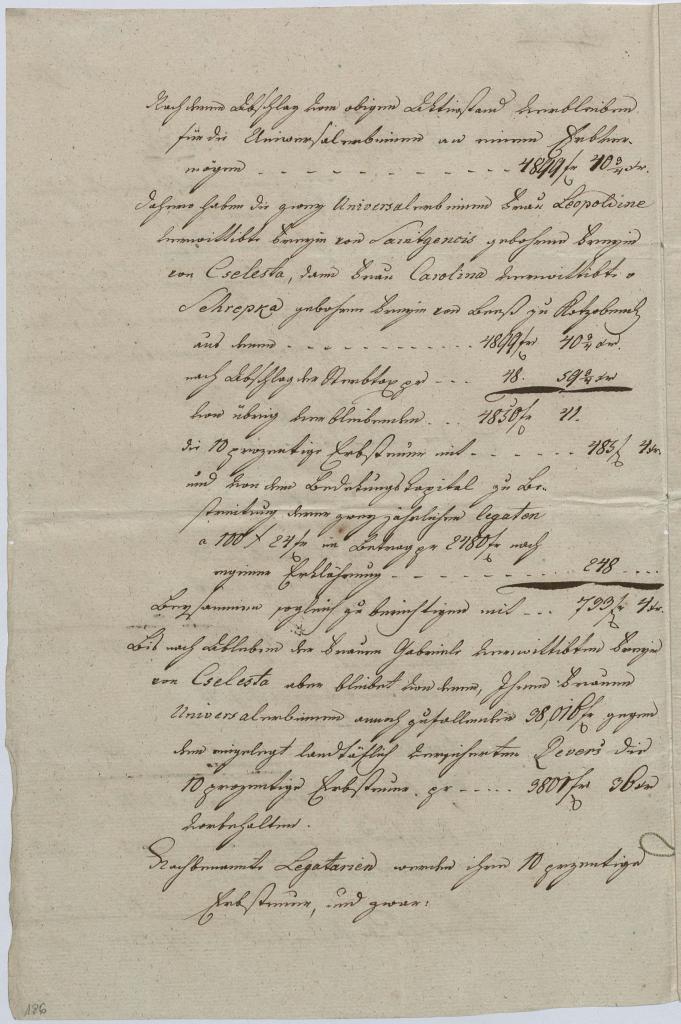 Nach deme Abschlag vom obigen Aktivstand verbleiben
für die Universalerbinnen an reinem Erbver-
mögen - - - - - - - 4899 fr 40 2/4 xr.
Dahero haben die zwey Universalerbinnen Frau Leopoldine
verwittibte Freyin von Saintgenois gebohrne Freyin
von Cselesta, dann Frau Carolina verwittibte
Schrepka gebohrne Freyin von Beeß zu
aus denen - - - - - - - 4899 fr 40 2/4 xr.
nach Abschlag der Sterbtax pr - - - 48. 59 2/4 xr
von übrig verbleibenden . . . 4850 fr 41.
die 10 prozentige Erbsteuer mit - - - - - - 485 f 4 xr.
und von dem Bedekungs Kapital zu Be-
streitung derer zwey jährlichen Legaten
a 100 f 24 fr im Betrag pr 2480 fr nach
eigener Erklährung - - - - - - 248 - - - -
Beysammen sogleich zu berichtigen mit - - - 733 fr 4 xr.
Bis nach Ableben der Frauen Gabriele verwittibten Freyin
von Cselesta aber bleibet von denen, Ihnen Frauen
Universalerbinnen annoch zufallenden 38,016 fr gegen
dem eingelegt landtäflich versicherten Revers die
10 prozentige Erbsteuer pr - - - - - 3801 fr 36 xr
vorbehalten.
Nachbenannte Legatarien werden ihre 10 przentige
Erbsteuer, und zwar:
186